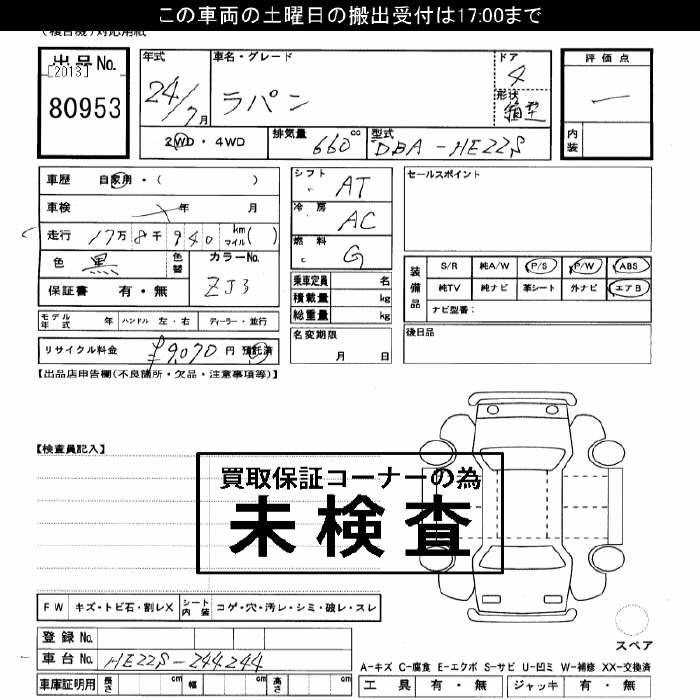 この車両の土曜日の搬出受付は17:00まで
(複合機)対応用紙
出品No.
[2013]
80953
年式
24/7月
車名・グレード
ラパン
ドア
4
形状
箱型
評価点
内装
2WD・4WD
排気量 660 cc
型式 DBA-HE22S
車歴 自家用・( )
車検 年 月
走行 17万8千940 km マイル( )
色 黒 色替
カラーNo. ZJ3
保証書 有・無
シフト AT
冷房 AC
燃料 G
乗車定員 名
積載量 kg
総重量 kg
セールスポイント
装備品
S/R 純A/W P/S P/W ABS
純TV 純ナビ 革シート 外ナビ エアB
ナビ型番:
モデル年式 年 ハンドル 左・右 ディーラー・並行
名変期限
月 日
後日品
リサイクル料金 ¥9,070 円 預託済
【出品店申告欄(不良箇所・欠品・注意事項等)】
【検査員記入】
買取保証コーナーの為
未検査
FW キズ・トビ石・割レX シート内装 コゲ・穴・汚レ・シミ・破レ・スレ
登録No.
車台No. HE22S-244244
車庫証明用 長さ cm 幅 cm 高さ cm
スペア
A-キズ C-腐食 E-エクボ S-サビ U-凹ミ W-補修 XX-交換済
工具 有・無 ジャッキ 有・無